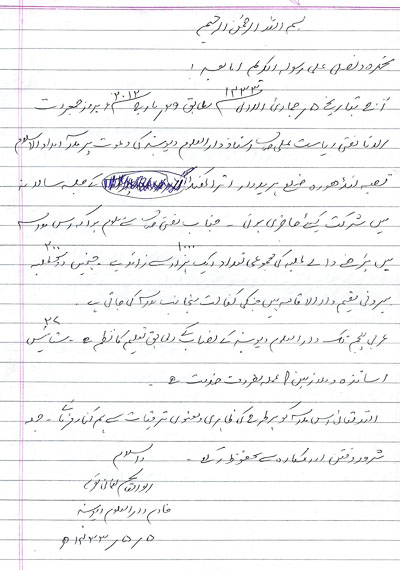 بسم اللہ الرحمٰن الرحیم
نحمدہ ونصلی علی رسولہ الکریم امابعد!
آج بتاریخ ۵ جمادی الاولیٰ ۱۴۳۳ مطابق ۲۹ مارچ ۲۰۱۲ء بروز جمعرات
مفتی ریاست علی صاحب استاذ دارالعلوم دیوبند کی دعوت پر مدرسہ امداد الاسلام
قصبہ لنڈھورہ ضلع ہریدوار اتراکھنڈ کے جلسہ سالانہ
میں شرکت کیلئے حاضری ہوئی۔ جناب مفتی صاحب سے معلوم ہوا کہ اس مدرسہ
میں پڑھنے والے طلبہ کی مجموعی تعداد ایک ہزار ۱۰۰۰ سے زائد ہے۔ جنمیں دو سو ۲۰۰ طلبہ
بیرونی مقیم دارالاقامہ ہیں جنکی کفالت منجانب مدرسہ کی جاتی ہے۔
عربی پنجم تک دارالعلوم دیوبند کے نصاب کے مطابق تعلیم کا نظم ہے۔ ۲۷
اساتذہ وملازمین کا عملہ مصروف خدمت ہے۔
اللہ تعالیٰ اس مدرسہ کو ہر طرح کی ظاہری ومعنوی ترقیات سے ہمکنار فرمائے۔ جملہ
شرور وفتن اور مکارہ سے محفوظ رکھے۔
والسلام
ابوالقاسم نعمانی
خادم دارالعلوم دیوبند
۵؍۵؍۱۴۳۳ھ